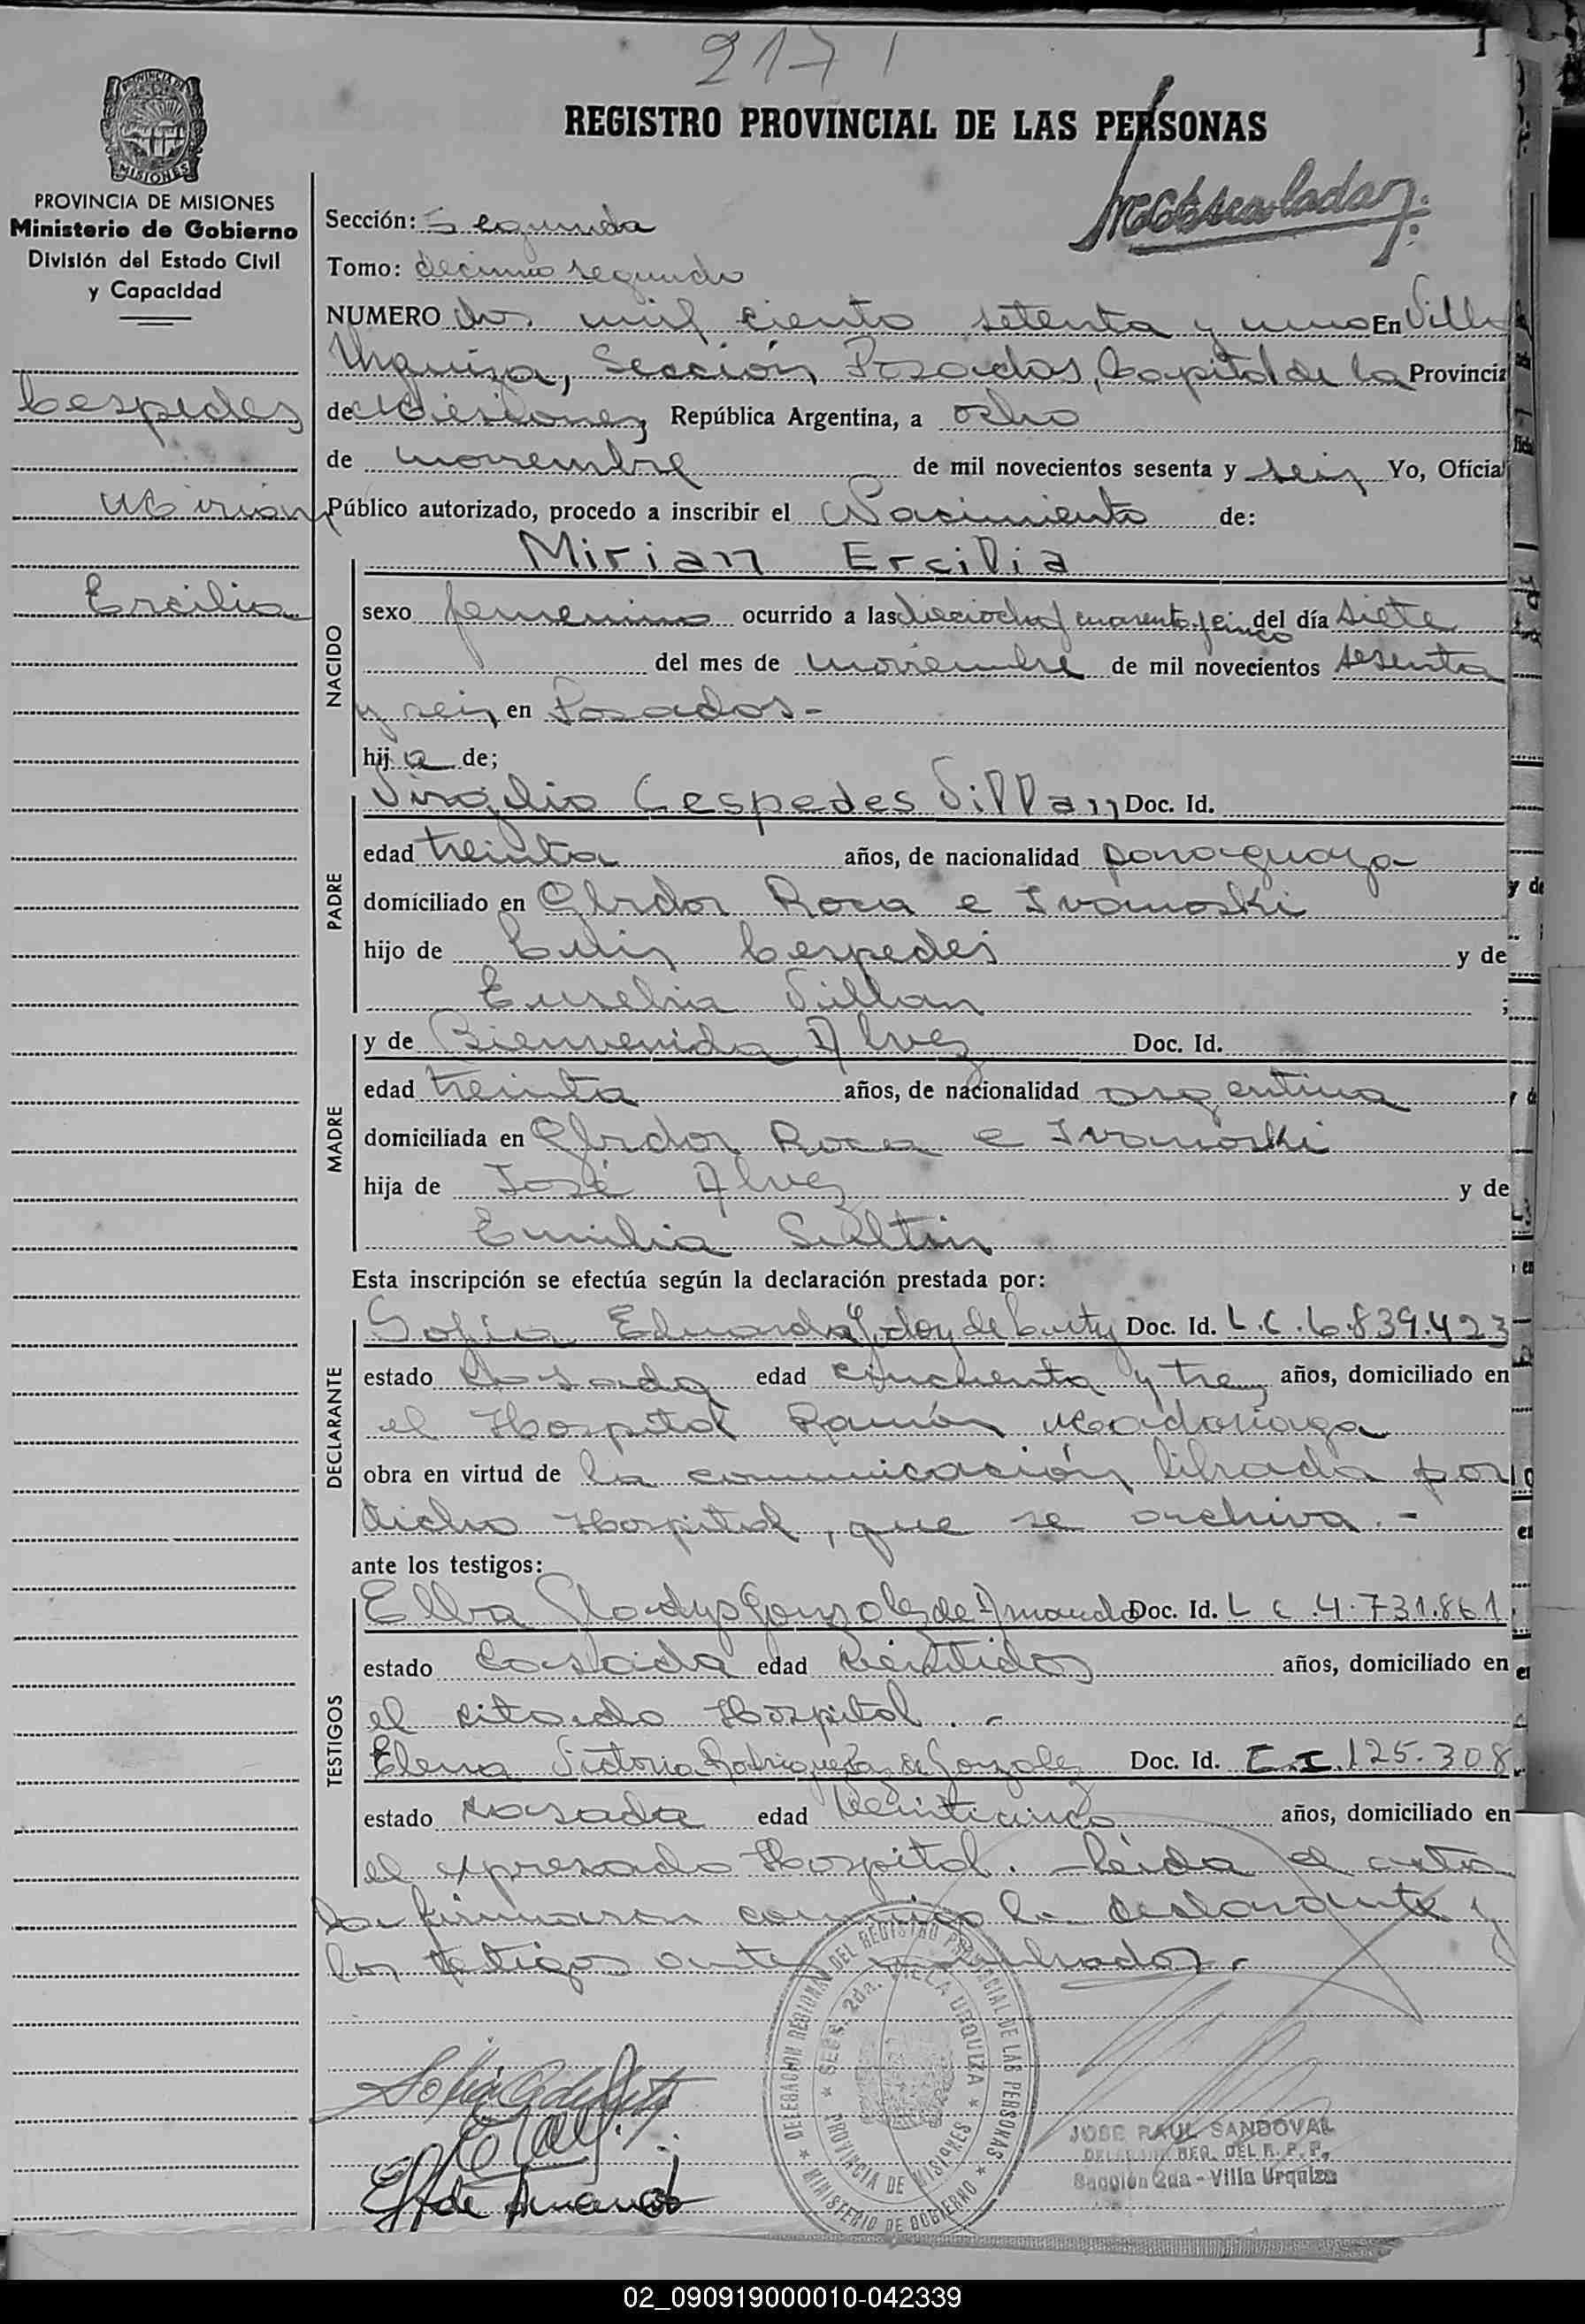 2171
REGISTRO PROVINCIAL DE LAS PERSONAS
PROVINCIA DE MISIONES
Ministerio de Gobierno
División del Estado Civil
y Capacidad
Sección: Segunda
Tomo: decimo segundo
NUMERO dos mil ciento setenta y uno En Villa
Urquiza, Sección Posadas, Capital de la Provincia
Cespedes
de Misiones, República Argentina, a ocho
de noviembre de mil novecientos sesenta y seis Yo, Oficial
Mirian
Público autorizado, procedo a inscribir el Nacimiento de:
Mirian Ercilia
Ercilia
NACIDO
sexo femenino ocurrido a las dieciocho y cuarenta y cinco del día siete
del mes de noviembre de mil novecientos sesenta
y seis en Posadas-
hija de;
PADRE
Virgilio Cespedes Villan Doc. Id.
edad treinta años, de nacionalidad paraguaya
domiciliado en Roca e Ivanoski
hijo de Luis Cespedes y de
Eusebia Villan ;
MADRE
y de Bienvenida Alvez Doc. Id.
edad treinta años, de nacionalidad argentina
domiciliada en Roca e Ivanoski
hija de José Alvez y de
Emilia
Esta inscripción se efectúa según la declaración prestada por:
DECLARANTE
Sofia Eduarda Godoy de Doc. Id. L.C.6.839.423
estado casada edad cincuenta y tres años, domiciliado en
el Hospital Ramón Madariaga
obra en virtud de la comunicación librada por
dicho Hospital, que se archiva.-
ante los testigos:
TESTIGOS
Elba Gladys Gonzalez de Amarado Doc. Id. L C 4.731.861
estado casada edad veintidos años, domiciliado en
el citado Hospital.-
Elena Victoria de Gonzalez Doc. Id. C.I. 125.308
estado casada edad veinticinco años, domiciliado en
el expresado Hospital. Leida el acta
la firmaron conmigo la declarante y
los testigos antes nombrados.-
DELEGACION REGIONAL DEL REGISTRO PROVINCIAL DE LAS PERSONAS
SECC. 2da. VILLA URQUIZA
PROVINCIA DE MISIONES
MINISTERIO DE GOBIERNO
JOSE RAUL SANDOVAL
DELEGADO REG. DEL R. P. P.
Sección 2da - Villa Urquiza
02_090919000010-042339